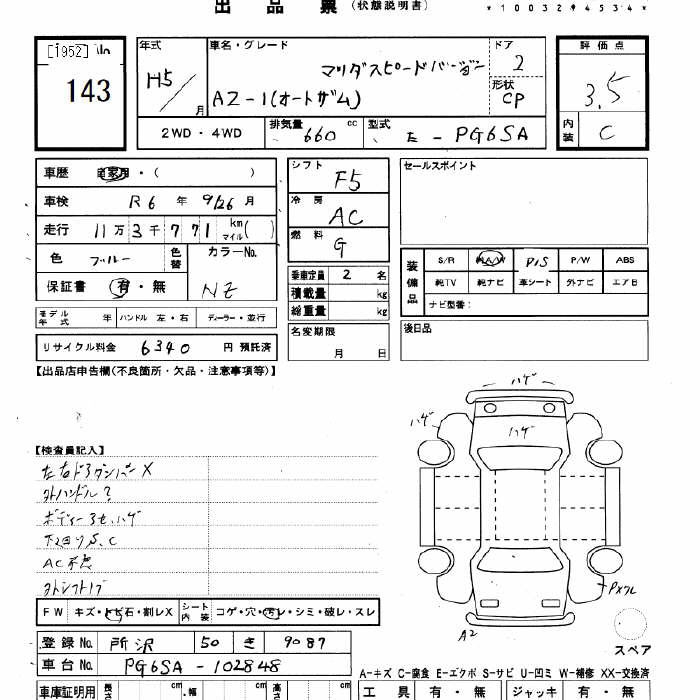 出 品 票 (状態説明書)
*10032945 34*
[1952] 
143
年式 H5 / 月
車名・グレード マツダスピードバージョン
AZ-1(オートザム)
ドア 2
形状 CP
評価点 3.5
内装 C
2WD・4WD
排気量 660 cc
型式 E - PG6SA
車歴 自家用・( )
車検 R6 年 9/26 月
走行 11万3千771 km マイル( )
色 ブルー 色替
カラーNo. NZ
保証書 有・無
モデル年式 年 ハンドル 左・右 ディーラー・並行
リサイクル料金 6340 円 預託済
シフト F5
冷房 AC
燃料 G
乗車定員 2 名
積載量 kg
総重量 kg
名変期限 月 日
セールスポイント
装備品
S/R 純A/W P/S P/W ABS
純TV 純ナビ 革シート 外ナビ エアB
ナビ型番:
後日品
【出品店申告欄(不良箇所・欠品・注意事項等)】
【検査員記入】
左右ドアダンパー X
外ハンドル ?
ボディー3セ、ハゲ
下回りS、C
AC不良
外シフトノブ
ハゲ
ハゲ
ハゲ
PXワレ
A2
スペア
FW キズ・トビ石・割レX シート内装 コゲ・穴・汚レ・シミ・破レ・スレ
登録No. 所沢 50 き 9087
車台No. PG6SA-102848
A-キズ C-腐食 E-エクボ S-サビ U-凹ミ W-補修 XX-交換済
車庫証明用 長さ cm 幅 cm 高さ cm
工具 有・無 ジャッキ 有・無